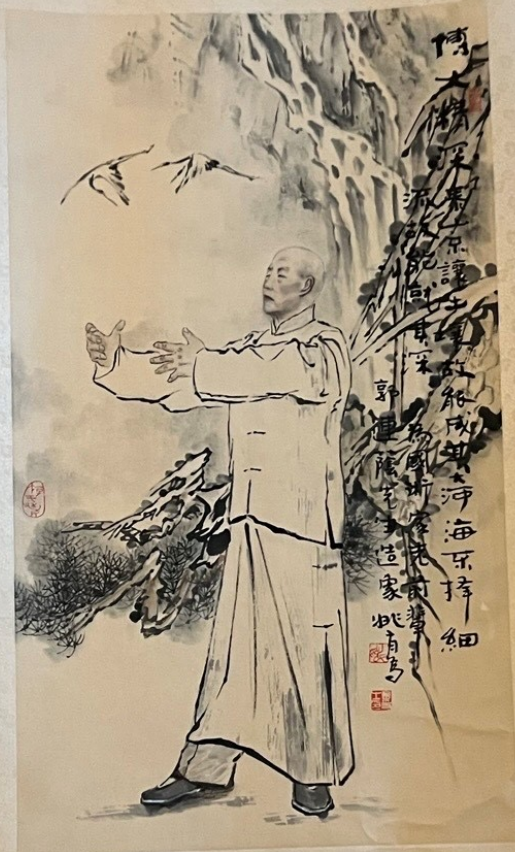 博大精深泰山不讓土壤故能成其大河海不择細
流故能就其深
為國術家老前輩
郭連蔭先生造象 姚有多